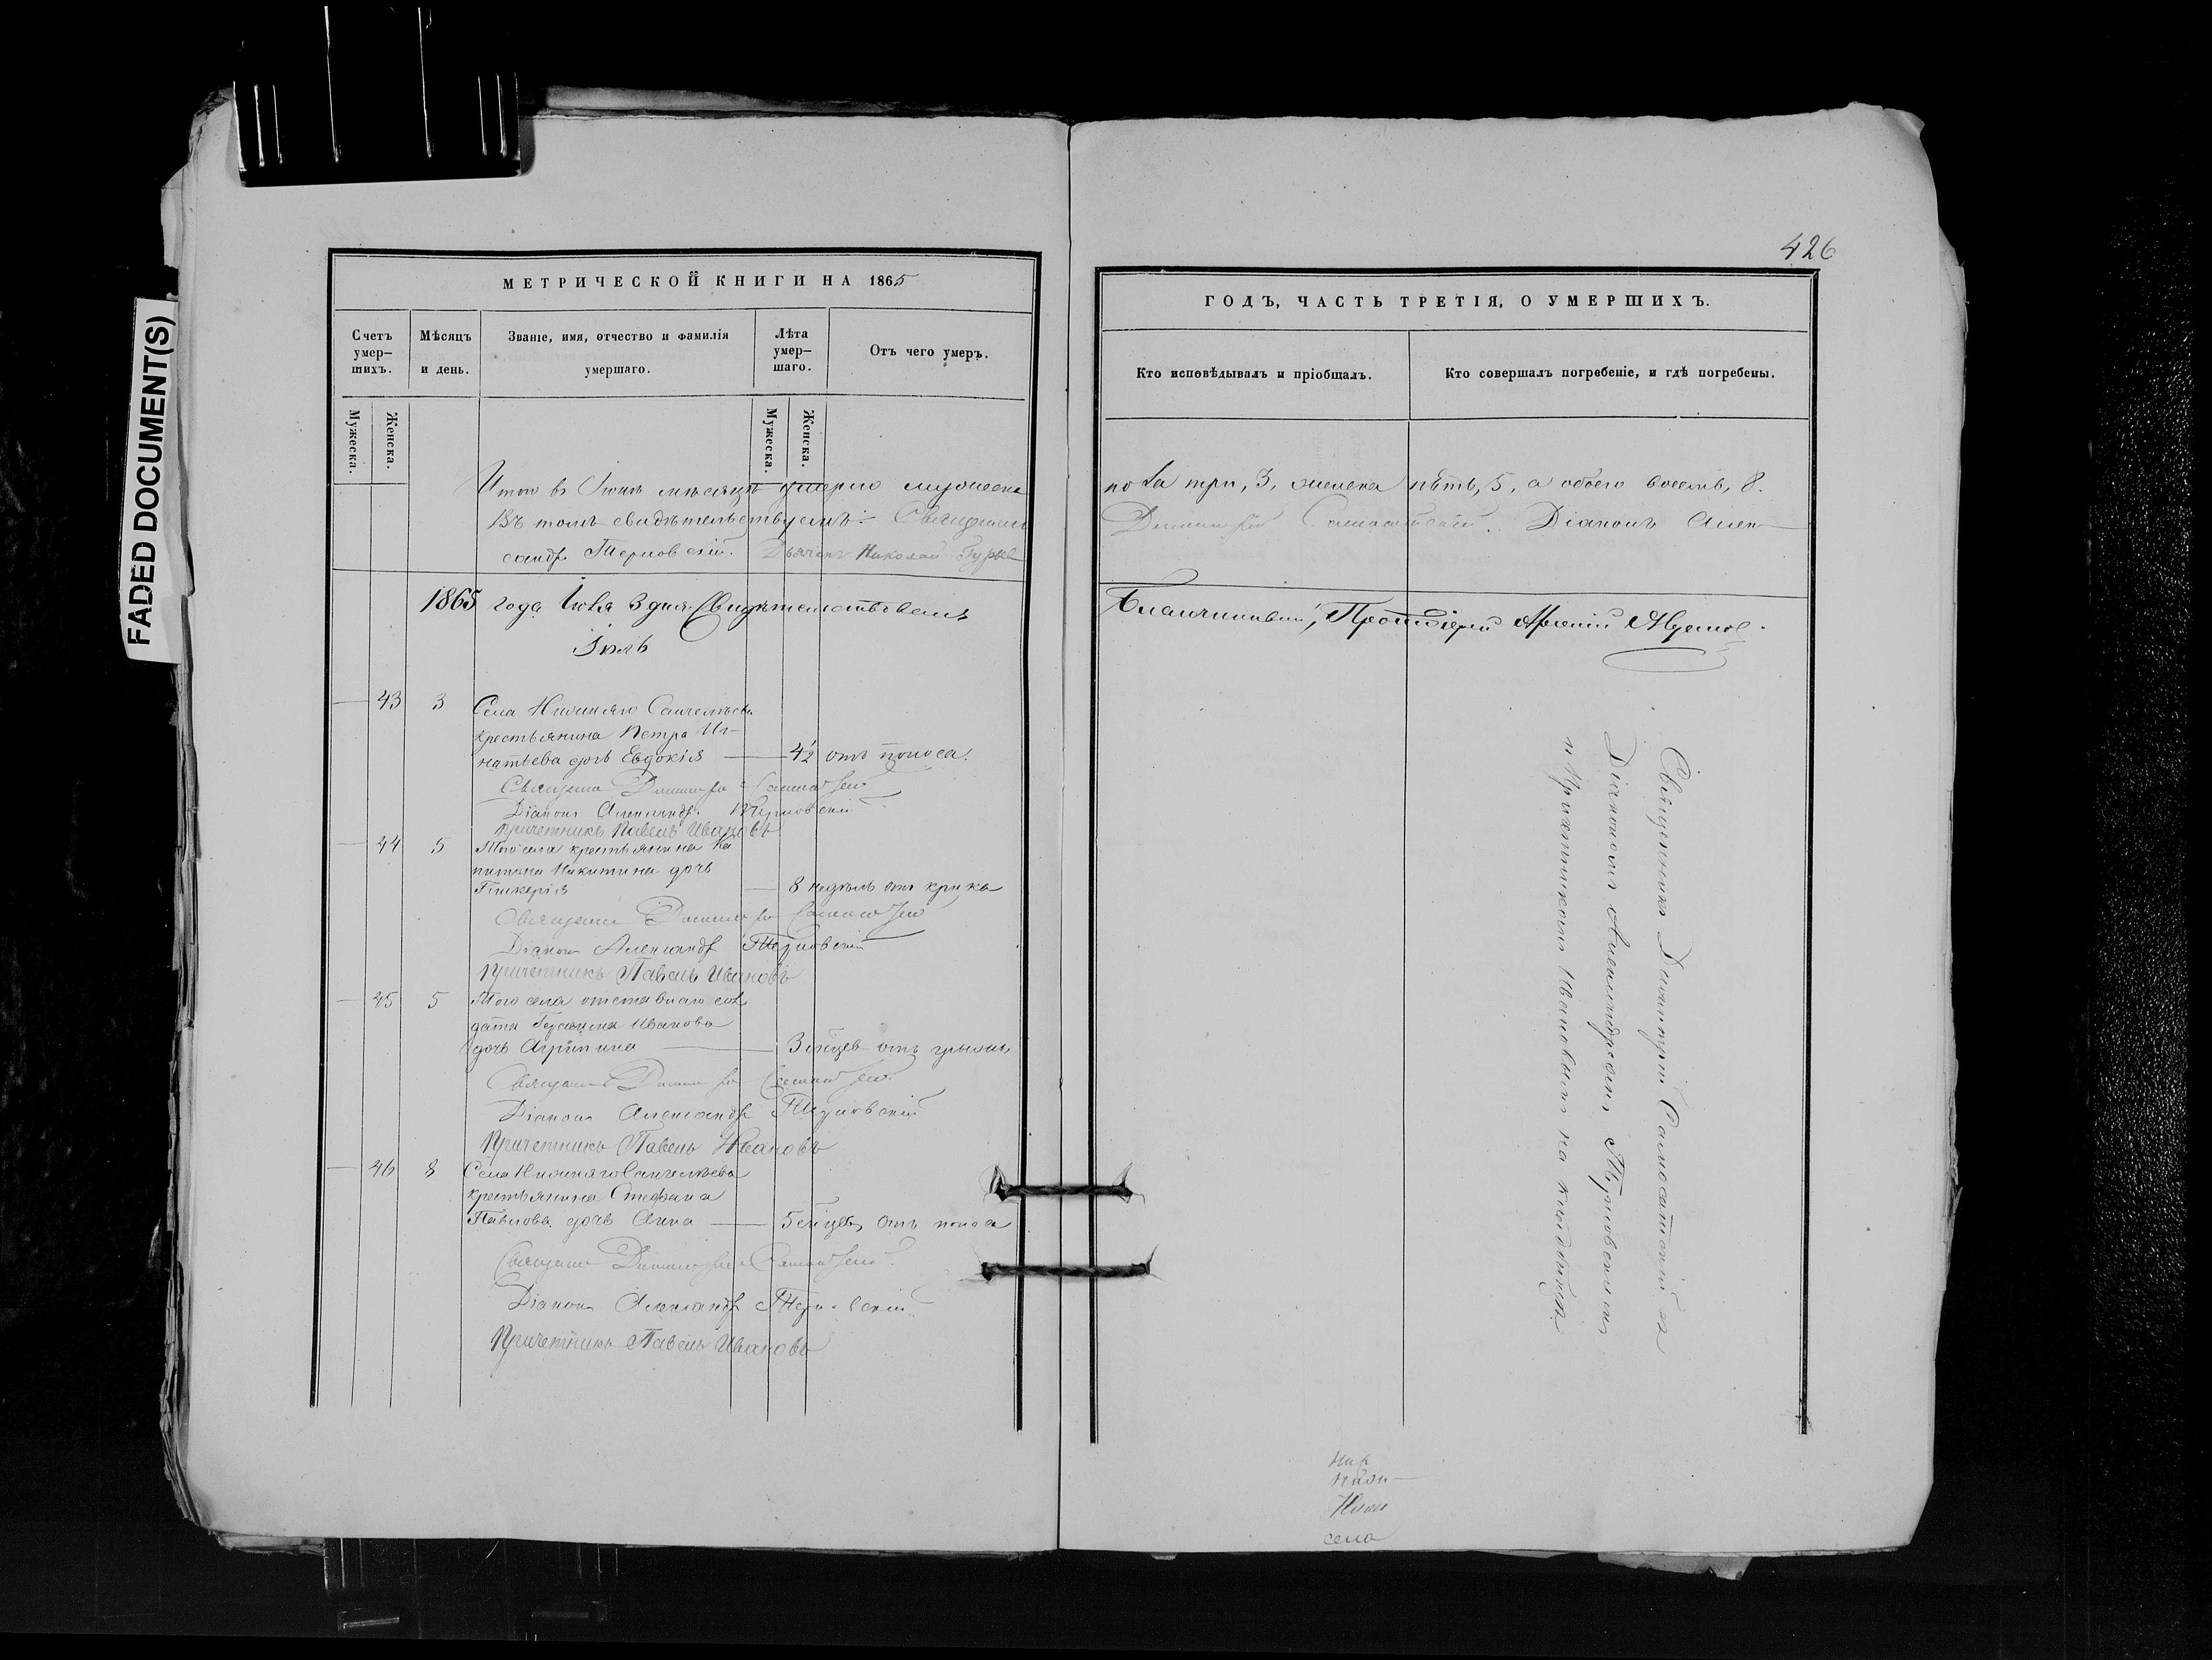 FADED DOCUMENT(S)
МЕТРИЧЕСКОЙ КНИГИ НА 1865
Счетъ умер-шихъ.
Мужеска.
Женска.
Мѣсяцъ и день.
Званіе, имя, отчество и фамилія умершаго.
Лѣта умер-шаго.
Мужеска.
Женска.
Отъ чего умеръ.
Итого въ Іюнѣ мѣсяцѣ умерло мужеска
Въ томъ свидѣтельствуемъ: Священникъ
сандръ Терновскій. Дьячекъ Николай Гурьев
1865 года Іюля 3 дня. Свидѣтельствовалъ
Іюль
43 3 Села Нижняго
крестьянина Петра Иг-
натьева дочь Евдокія 4½ отъ поноса.
Священникъ Димитрій
Діаконъ Александръ Терновскій
Причетникъ Павелъ Ивановъ
44 5 Того села крестьянина Ка
питона Никитина дочь
Гликерія 8 недѣль отъ крика
Священникъ Димитрій
Діаконъ Александръ Терновскій
Причетникъ Павелъ Ивановъ
45 5 Того села отставнаго сол
дата Иванова
дочь Агрипина 3 отъ грыжи
Священникъ Димитрій
Діаконъ Александръ Терновскій
Причетникъ Павелъ Ивановъ
46 8 Села Нижняго
крестьянина Стефана
Павлова дочь Анна 5 отъ поноса
Священникъ Димитрій
Діаконъ Александръ Терновскій
Причетникъ Павелъ Ивановъ
426
ГОДЪ, ЧАСТЬ ТРЕТІЯ, О УМЕРШИХЪ.
Кто исповѣдывалъ и пріобщалъ.
Кто совершалъ погребеніе, и гдѣ погребены.
пола три, 3, женска пять, 5, а обоего восемь, 8.
Димитрій Діаконъ Алек-
Благочинный, Протоіерей
Священникъ Димитрій съ
Діакономъ Александромъ Терновскимъ
и Причетникомъ Ивановымъ на кладбищѣ
села